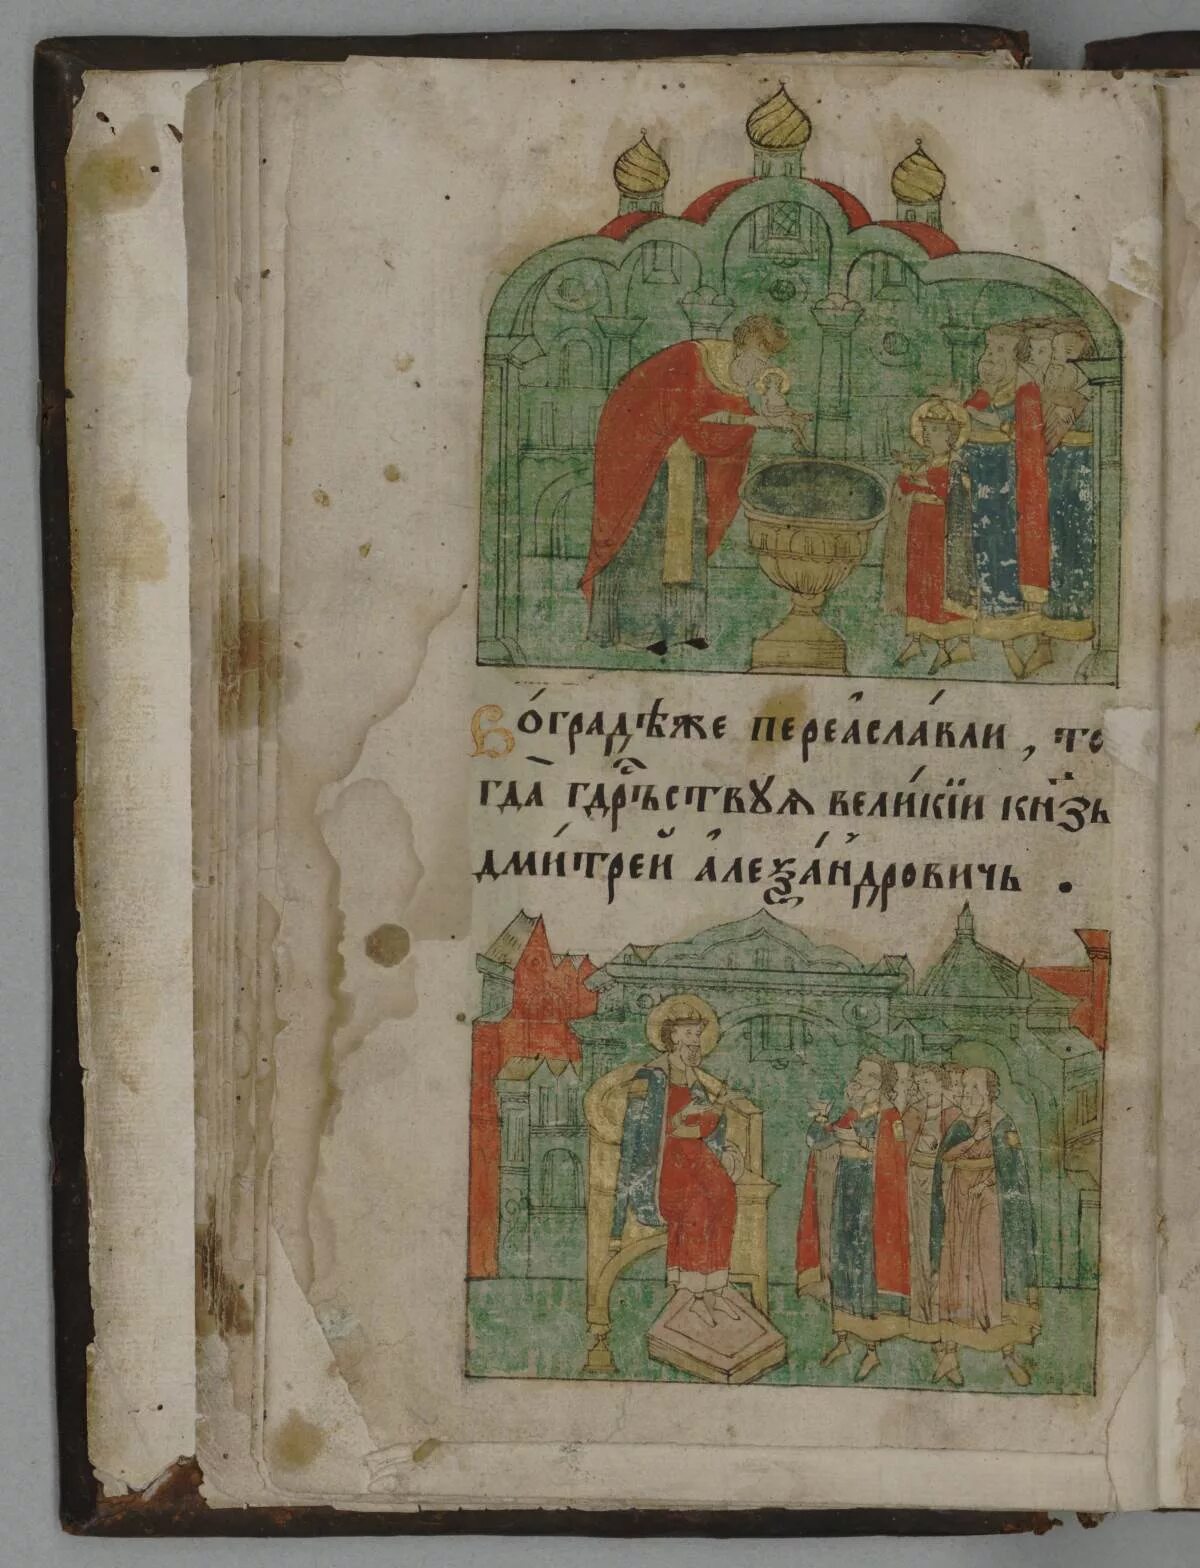 Во́градѣже переѧсла́вли , то
гда̀ гдⷭ҇рьствꙋѧ вели́кїи кн҃зь
дми́трей а҆леѯа́ндровичь .